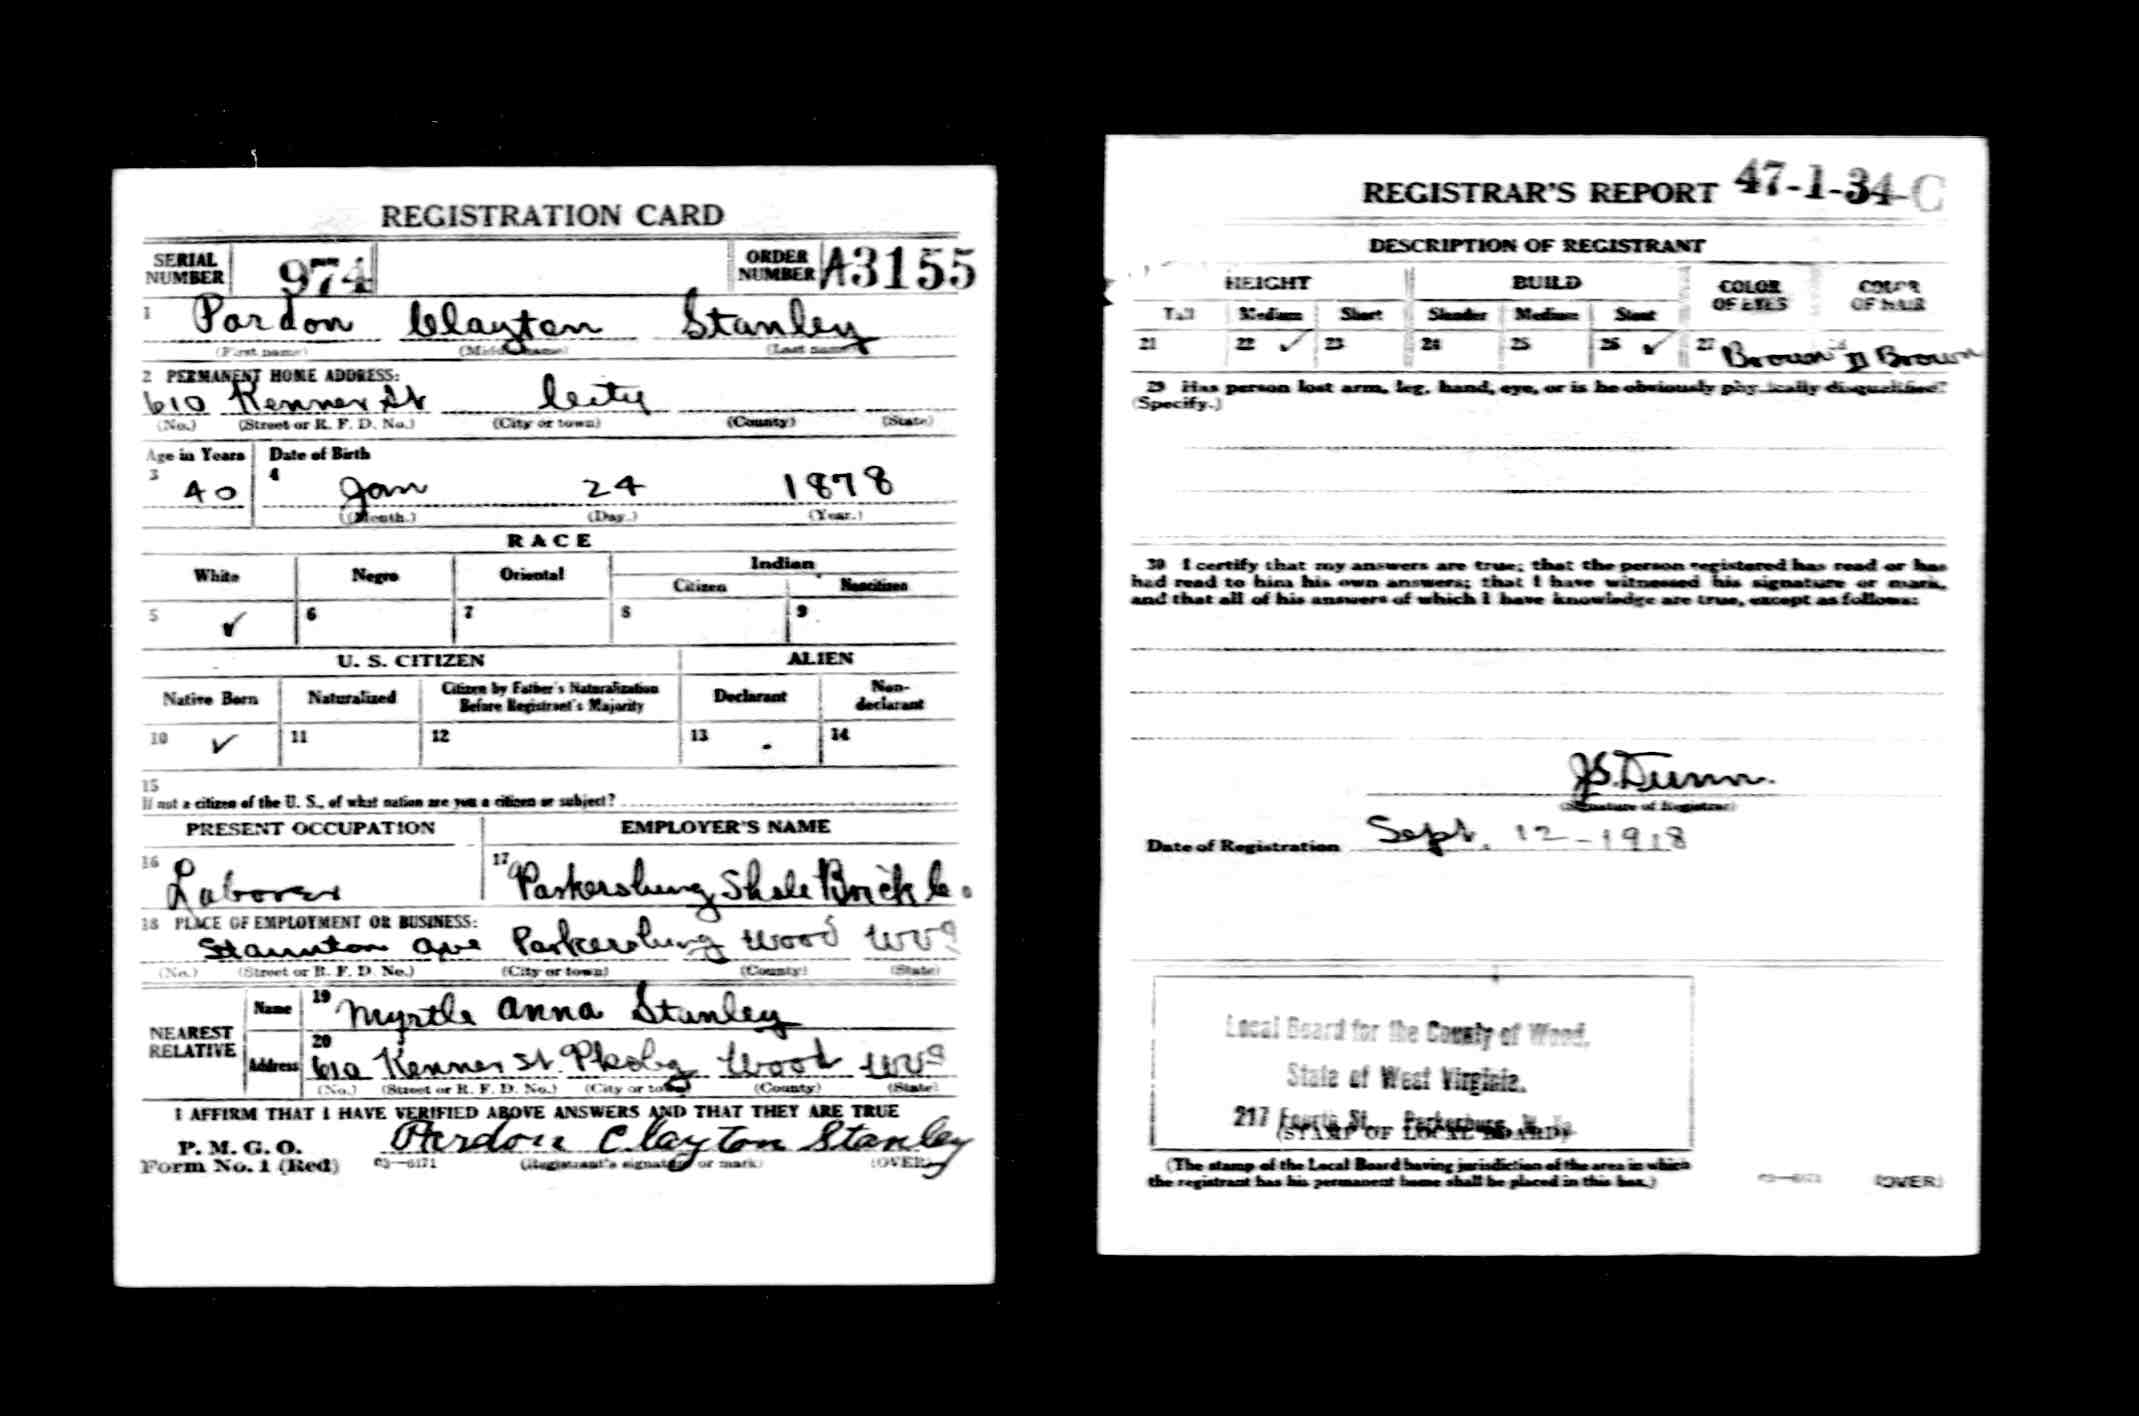 REGISTRATION CARD
SERIAL NUMBER 974 ORDER NUMBER A3155
1 Pardon Clayton Stanley
(First name) (Middle name) (Last name)
2 PERMANENT HOME ADDRESS:
610 Kenner St City
(No.) (Street or R. F. D. No.) (City or town) (County) (State)
Age in Years Date of Birth
3 40 4 Jan 24 1878
(Month.) (Day.) (Year.)
RACE
White Negro Oriental Indian
Citizen Noncitizen
5 ✓ 6 7 8 9
U. S. CITIZEN ALIEN
Native Born Naturalized Citizen by Father's Naturalization Before Registrant's Majority Declarant Non-declarant
10 ✓ 11 12 13 14
15
If not a citizen of the U. S., of what nation are you a citizen or subject?
PRESENT OCCUPATION EMPLOYER'S NAME
16 Laborer 17 Parkersburg Shale Brick Co.
18 PLACE OF EMPLOYMENT OR BUSINESS:
Staunton ave Parkersburg Wood WVa
(No.) (Street or R. F. D. No.) (City or town) (County) (State)
NEAREST RELATIVE
Name 19 Myrtle Anna Stanley
Address 20 610 Kenner St. Pksbg Wood WVa
(No.) (Street or R. F. D. No.) (City or town) (County) (State)
I AFFIRM THAT I HAVE VERIFIED ABOVE ANSWERS AND THAT THEY ARE TRUE
P. M. G. O.
Form No. 1 (Red) 03—6171 Pardon Clayton Stanley
(Registrant's signature or mark) (OVER)
REGISTRAR'S REPORT 47-1-34-C
DESCRIPTION OF REGISTRANT
HEIGHT BUILD COLOR OF EYES COLOR OF HAIR
Tall Medium Short Slender Medium Stout
21 22 ✓ 23 24 25 26 ✓ 27 Brown Brown
29 Has person lost arm, leg, hand, eye, or is he obviously physically disqualified?
(Specify.)
30 I certify that my answers are true; that the person registered has read or has
had read to him his own answers; that I have witnessed his signature or mark,
and that all of his answers of which I have knowledge are true, except as follows:
J.S. Dunn.
(Signature of Registrar)
Date of Registration Sept. 12-1918
Local Board for the County of Wood,
State of West Virginia.
217 Fourth St. Parkersburg, W. Va.
(STAMP OF LOCAL BOARD)
(The stamp of the Local Board having jurisdiction of the area in which
the registrant has his permanent home shall be placed in this box.)
03—6171 (OVER)